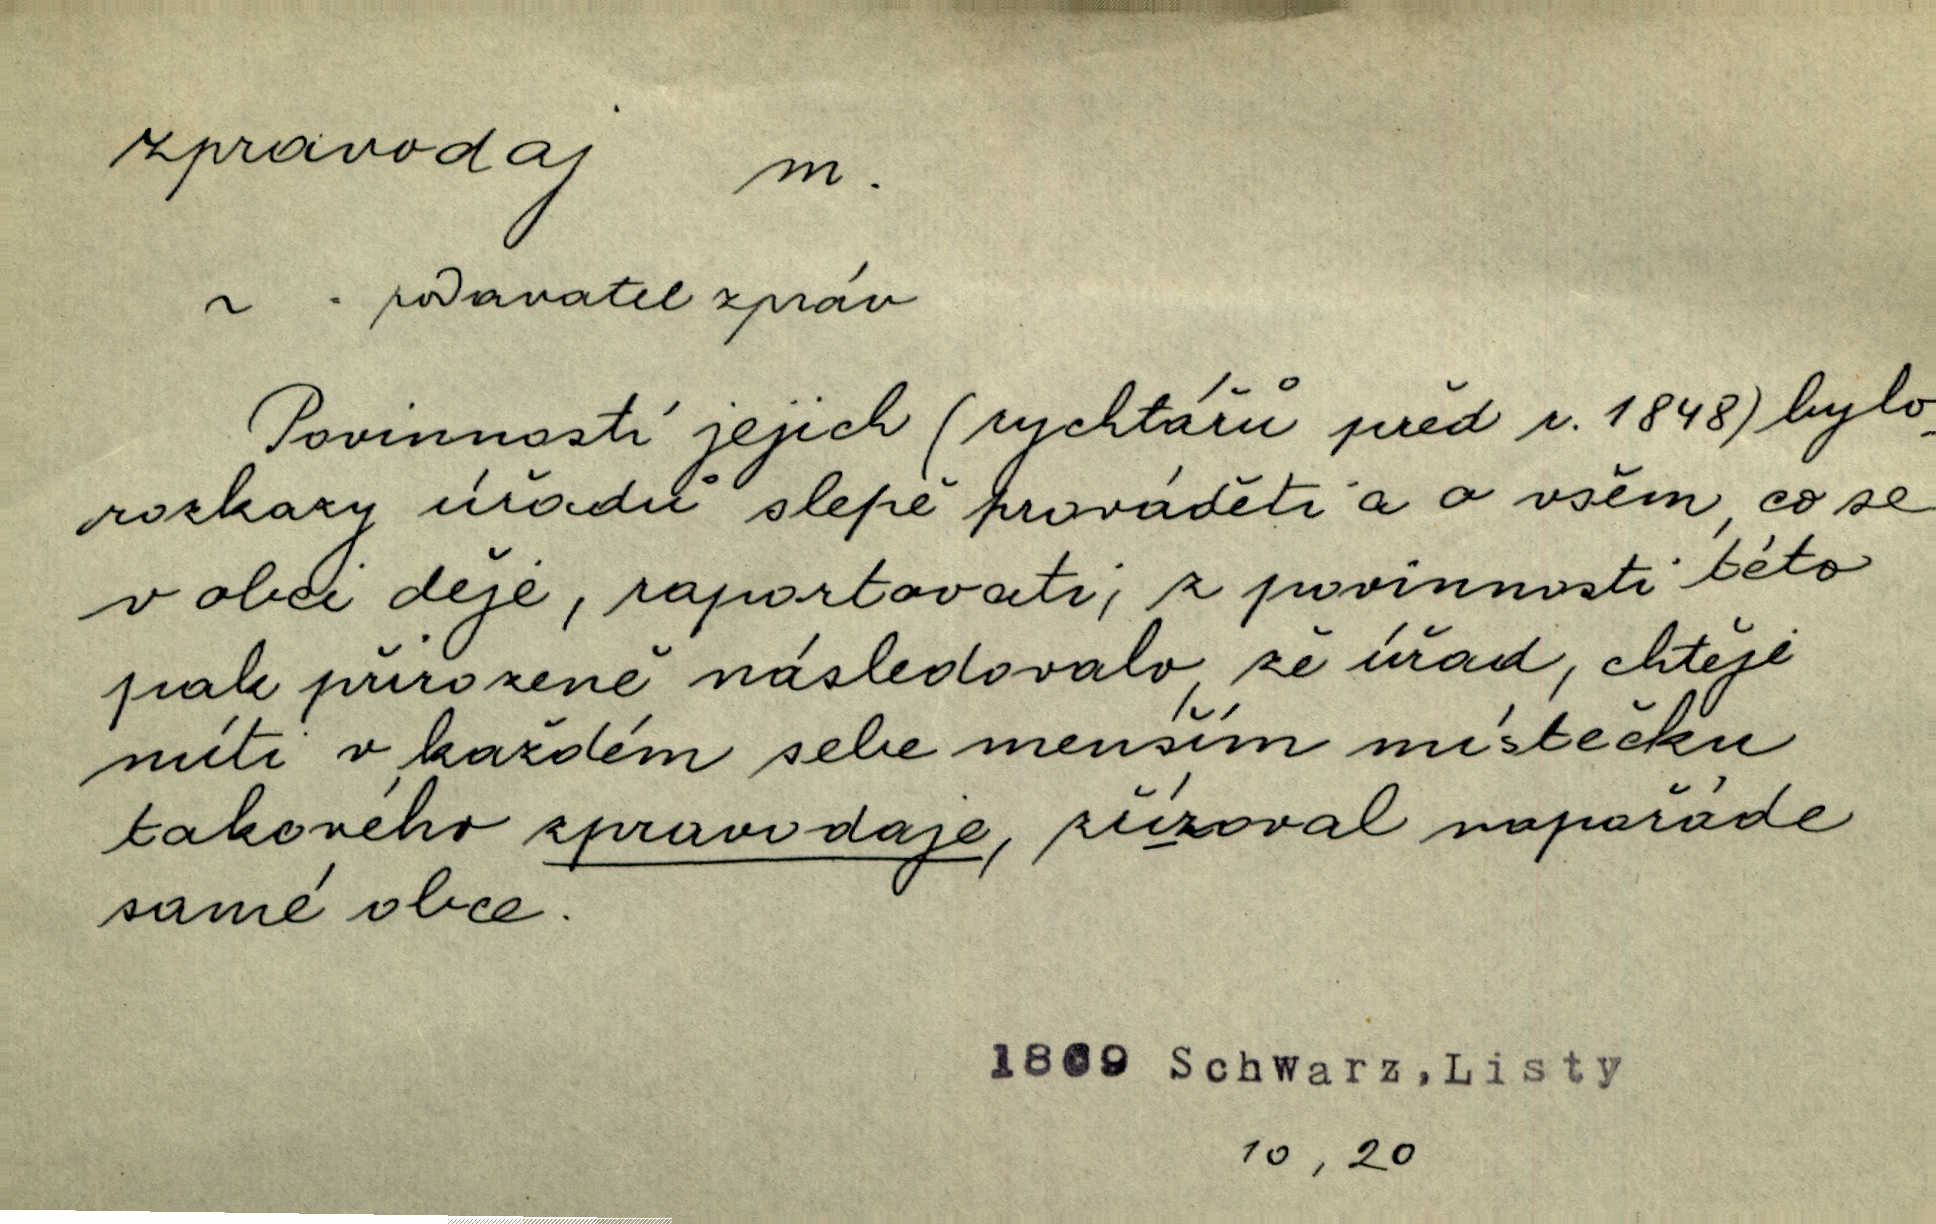 zpravodaj m.
~ . podavatel zpráv
Povinností jejich (rychtářů před r. 1848) bylo
rozkazy úřadů slepě prováděti a o všem, co se
v obci děje, raportovati; z povinnosti této
pak přirozeně následovalo, že úřad, chtěje
míti v každém sebe menším místečku
takového zpravodaje, zřízoval napořáde
samé obce.
1869 Schwarz,Listy
10, 20